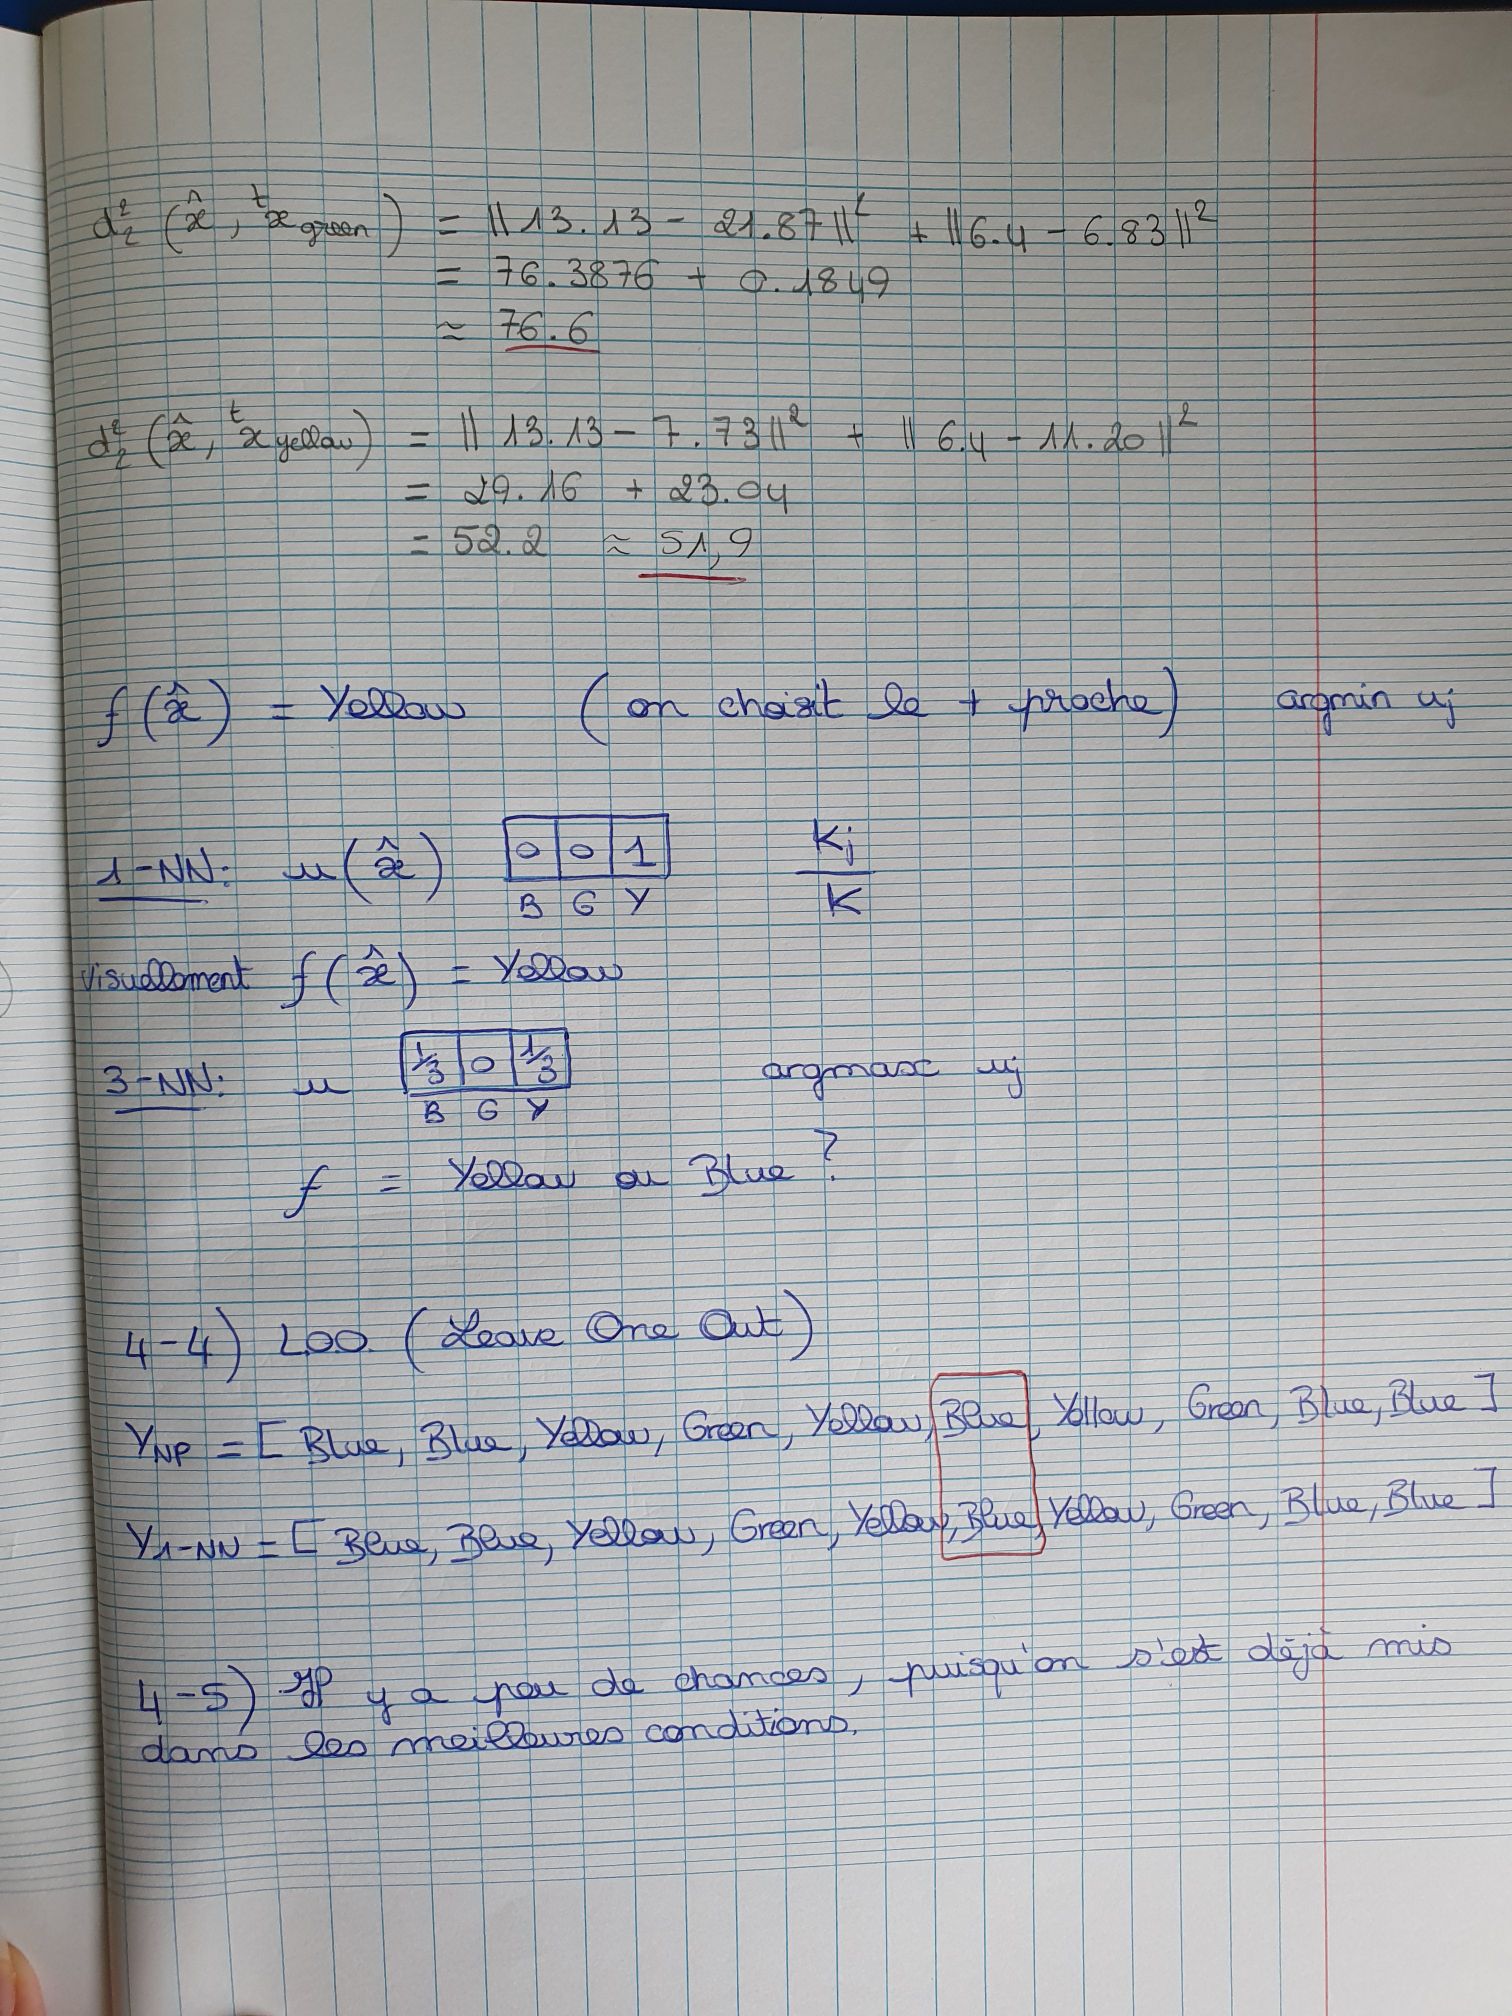 d₂² (x̂, ᵗx green) = ||13.13 - 21.87||² + ||6.4 - 6.83||²
= 76.3876 + 0.1849
≈ 76.6
d₂² (x̂, ᵗx yellow) = ||13.13 - 7.73||² + ||6.4 - 11.20||²
= 29.16 + 23.04
= 52.2 ≈ 51,9
f(x̂) = Yellow (on choisit le + proche) argmin uj
1-NN: u(x̂) 0 0 1 Kj / K
B G Y
Visuellement f(x̂) = Yellow
3-NN: u 1/3 0 1/3 argmax uj
B G Y
f = Yellow ou Blue ?
4-4) LOO. (Leave One Out)
YNP = [Blue, Blue, Yellow, Green, Yellow, Blue, Yellow, Green, Blue, Blue]
Y1-NN = [Blue, Blue, Yellow, Green, Yellow, Blue, Yellow, Green, Blue, Blue]
4-5) Il y a peu de chances, puisqu'on s'est déjà mis
dans les meilleures conditions.